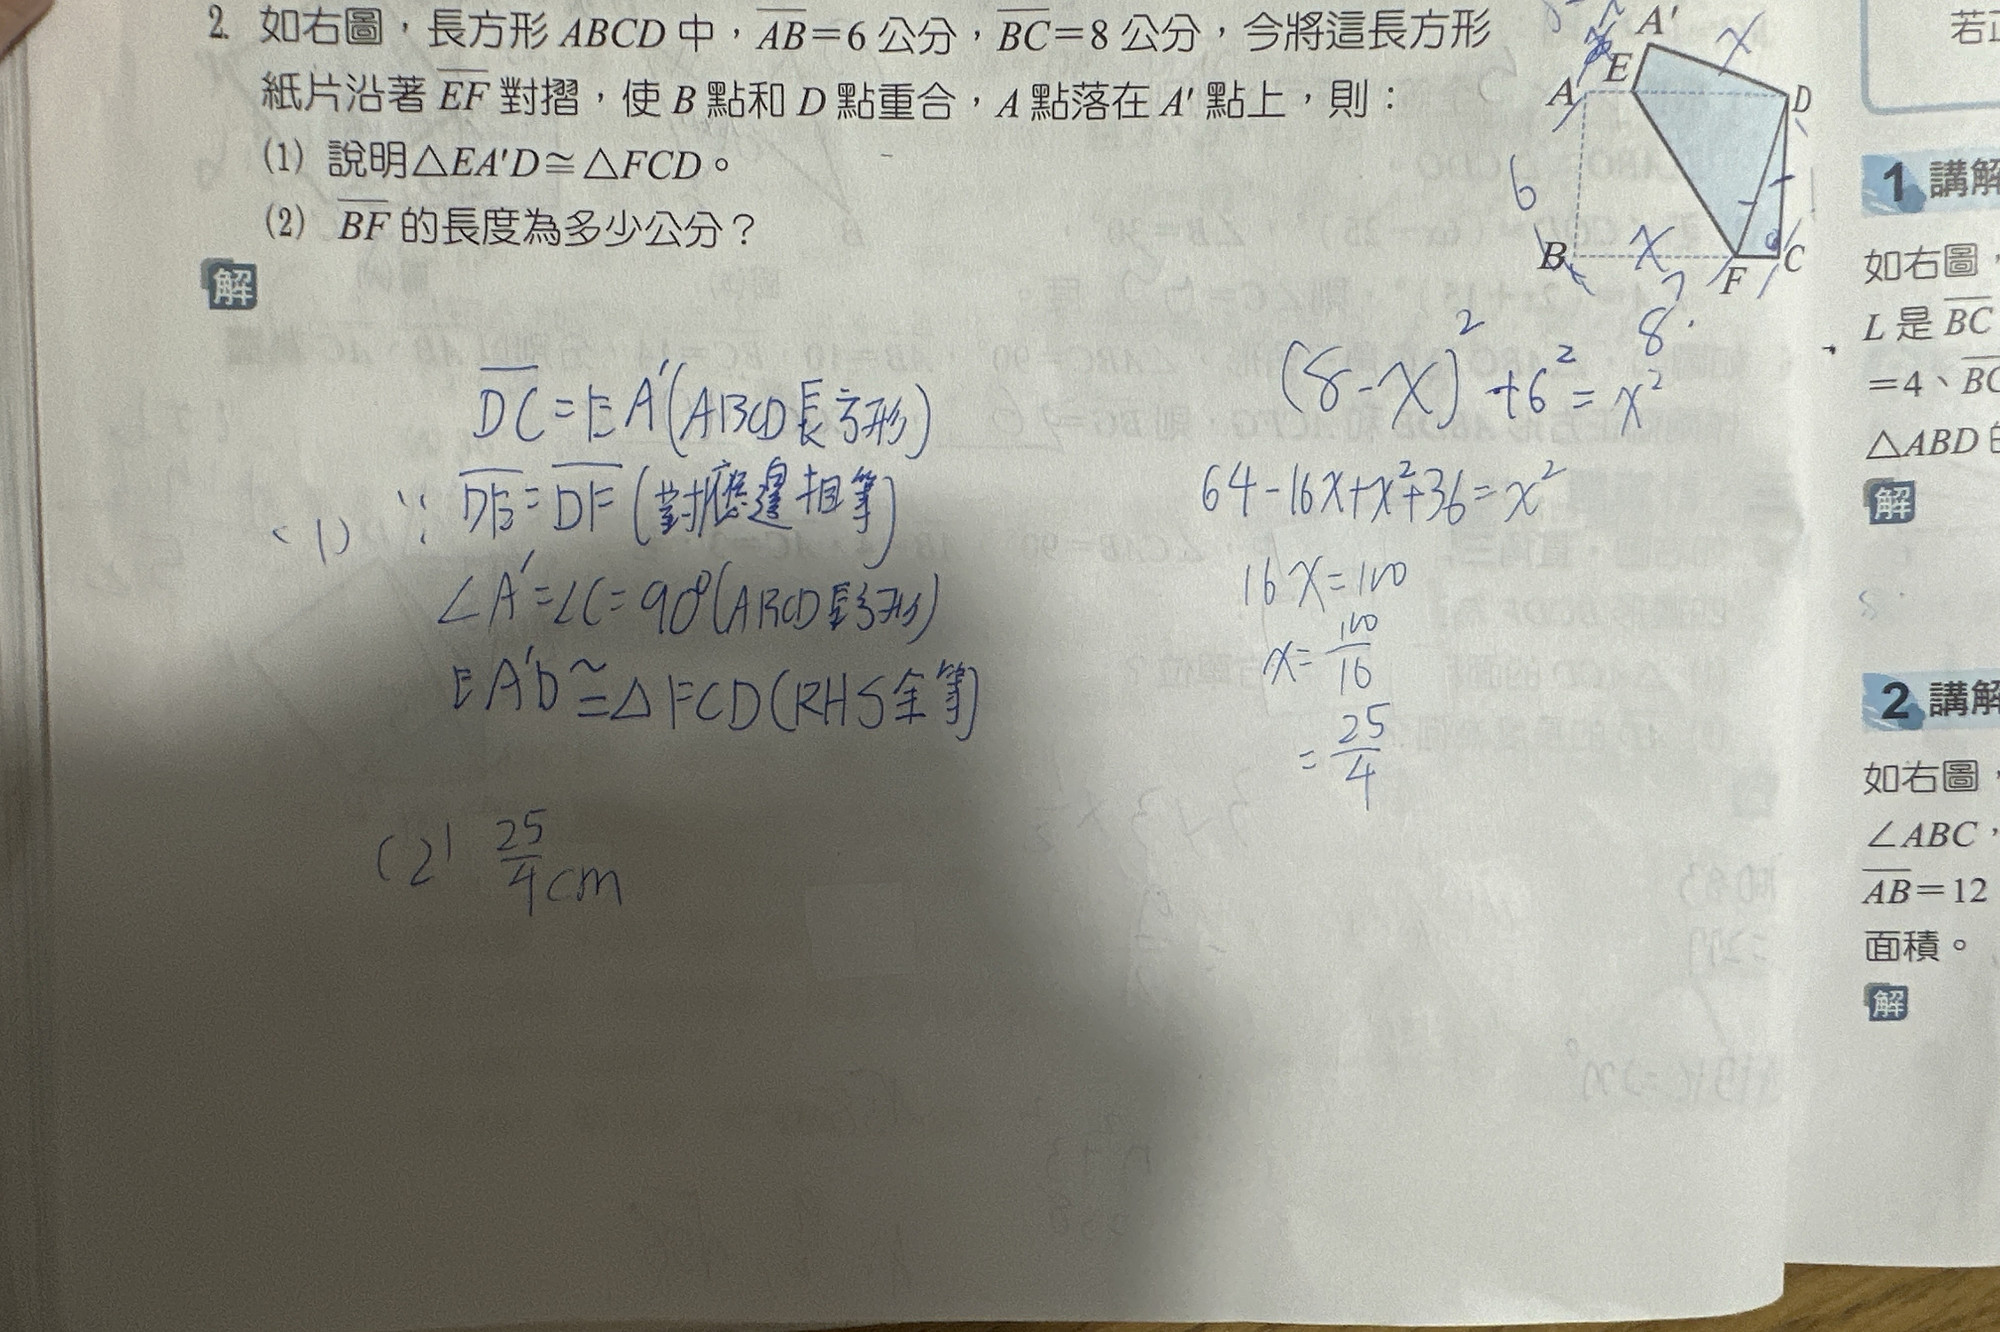 2. 如右圖，長方形 ABCD 中，AB＝6 公分，BC＝8 公分，今將這長方形
紙片沿著 EF 對摺，使 B 點和 D 點重合，A 點落在 A' 點上，則：
(1) 說明△EA'D≅△FCD。
(2) BF 的長度為多少公分？
解
A'
x
E
A
D
6
B
x
F
C
8
DC=EA'(ABCD長方形)
(1) ∵ DE=DF(對應邊相等)
∠A'=∠C=90°(ABCD長方形)
EA'D≅△FCD(RHS全等)
(2) 25/4 cm
(8-x)²+6²=x²
64-16x+x²+36=x²
16x=100
x=100/16
=25/4
若正
1 講解
如右圖，
L 是 BC
＝4、BC
△ABD 的
解
2 講解
如右圖，
∠ABC，
AB＝12
面積。
解